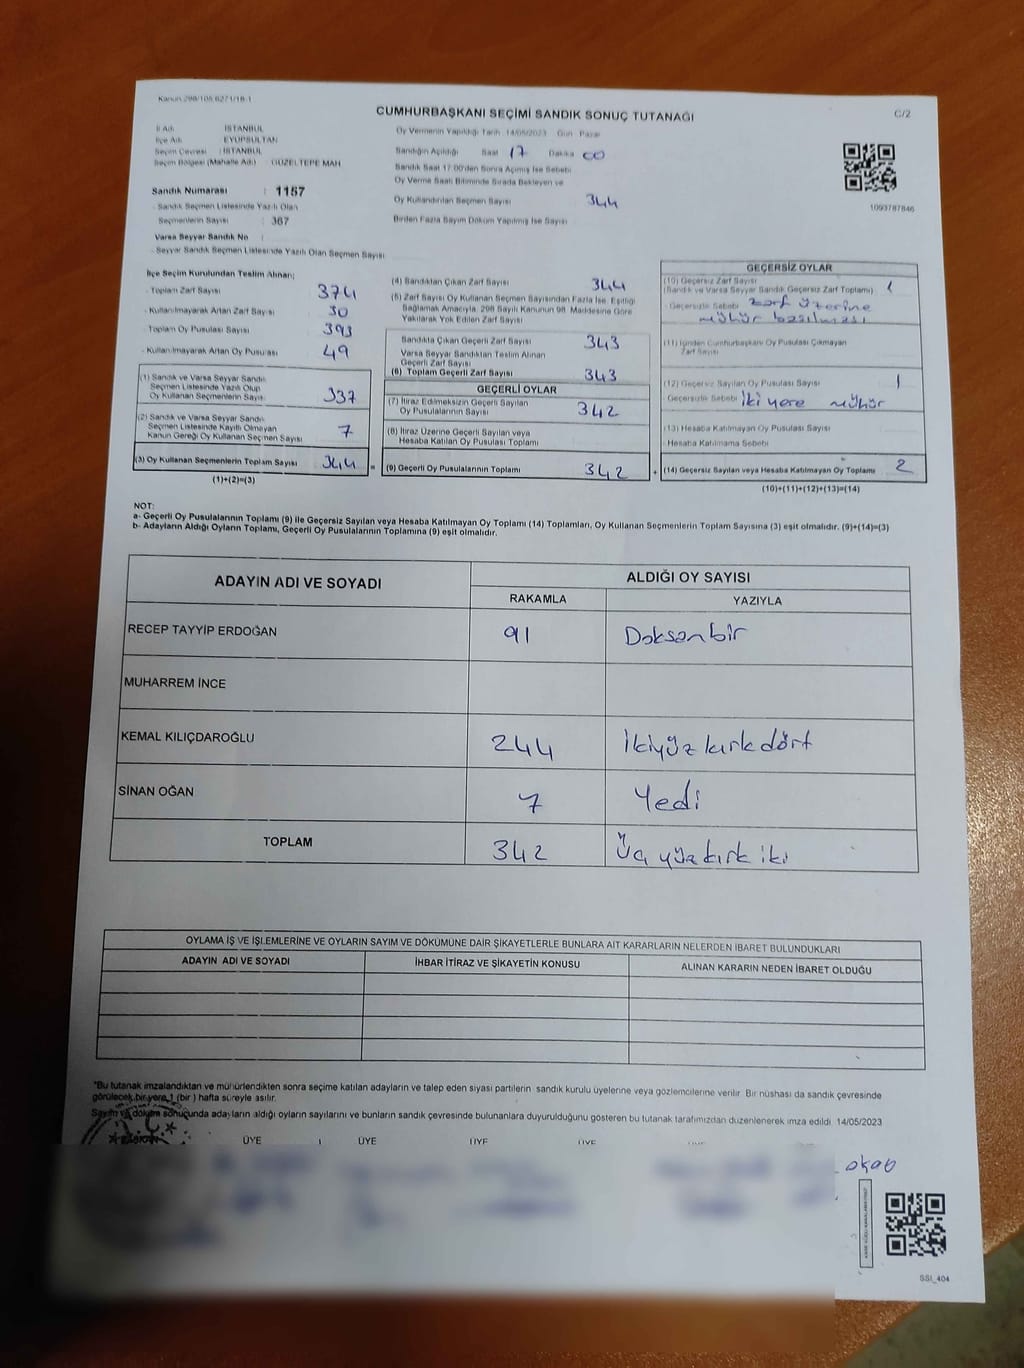 Kanun 298/105,6271/18-1
CUMHURBAŞKANI SEÇİMİ SANDIK SONUÇ TUTANAĞI
C/2
İl Adı : İSTANBUL
İlçe Adı : EYÜPSULTAN
Seçim Çevresi : İSTANBUL
Seçim Bölgesi (Mahalle Adı) : GÜZELTEPE MAH.
Sandık Numarası : 1157
Sandık Seçmen Listesinde Yazılı Olan
Seçmenlerin Sayısı : 367
Varsa Seyyar Sandık No :
Seyyar Sandık Seçmen Listesinde Yazılı Olan Seçmen Sayısı
Oy Vermenin Yapıldığı Tarih 14/05/2023 Gün Pazar
Sandığın Açıldığı Saat 17 Dakika 00
Sandık Saat 17:00'den Sonra Açılmış İse Sebebi
Oy Verme Saati Bitiminde Sırada Bekleyen ve
Oy Kullandırılan Seçmen Sayısı 344
Birden Fazla Sayım Döküm Yapılmış İse Sayısı
1093787846
İlçe Seçim Kurulundan Teslim Alınan;
- Toplam Zarf Sayısı 374
- Kullanılmayarak Artan Zarf Sayısı 30
- Toplam Oy Pusulası Sayısı 393
- Kullanılmayarak Artan Oy Pusulası 49
(1) Sandık ve Varsa Seyyar Sandık
Seçmen Listesinde Yazılı Olup
Oy Kullanan Seçmenlerin Sayısı 337
(2) Sandık ve Varsa Seyyar Sandık
Seçmen Listesinde Kayıtlı Olmayan
Kanun Gereği Oy Kullanan Seçmen Sayısı 7
(3) Oy Kullanan Seçmenlerin Toplam Sayısı 344 =
(1)+(2)=(3)
(4) Sandıktan Çıkan Zarf Sayısı 344
(5) Zarf Sayısı Oy Kullanan Seçmen Sayısından Fazla İse, Eşitliği
Sağlamak Amacıyla, 298 Sayılı Kanunun 98. Maddesine Göre
Yakılarak Yok Edilen Zarf Sayısı
Sandıkta Çıkan Geçerli Zarf Sayısı 343
Varsa Seyyar Sandıktan Teslim Alınan
Geçerli Zarf Sayısı
(6) Toplam Geçerli Zarf Sayısı 343
GEÇERLİ OYLAR
(7) İtiraz Edilmeksizin Geçerli Sayılan
Oy Pusulalarının Sayısı 342
(8) İtiraz Üzerine Geçerli Sayılan veya
Hesaba Katılan Oy Pusulası Toplamı
(9) Geçerli Oy Pusulalarının Toplamı 342 +
GEÇERSİZ OYLAR
(10) Geçersiz Zarf Sayısı
(Sandık ve Varsa Seyyar Sandık Geçersiz Zarf Toplamı) 1
- Geçersizlik Sebebi Zarf üzerine
mühür basılması
(11) İçinden Cumhurbaşkanı Oy Pusulası Çıkmayan
Zarf Sayısı
(12) Geçersiz Sayılan Oy Pusulası Sayısı 1
Geçersizlik Sebebi İki yere mühür
(13) Hesaba Katılmayan Oy Pusulası Sayısı
- Hesaba Katılmama Sebebi
(14) Geçersiz Sayılan veya Hesaba Katılmayan Oy Toplamı 2
(10)+(11)+(12)+(13)=(14)
NOT:
a- Geçerli Oy Pusulalarının Toplamı (9) ile Geçersiz Sayılan veya Hesaba Katılmayan Oy Toplamı (14) Toplamları, Oy Kullanan Seçmenlerin Toplam Sayısına (3) eşit olmalıdır. (9)+(14)=(3)
b- Adayların Aldığı Oyların Toplamı, Geçerli Oy Pusulalarının Toplamına (9) eşit olmalıdır.
ADAYIN ADI VE SOYADI
ALDIĞI OY SAYISI
RAKAMLA YAZIYLA
RECEP TAYYİP ERDOĞAN 91 Doksanbir
MUHARREM İNCE
KEMAL KILIÇDAROĞLU 244 İkiyüz kırk dört
SİNAN OĞAN 7 Yedi
TOPLAM 342 Üç yüz kırk iki
OYLAMA İŞ VE İŞLEMLERİNE VE OYLARIN SAYIM VE DÖKÜMÜNE DAİR ŞİKAYETLERLE BUNLARA AİT KARARLARIN NELERDEN İBARET BULUNDUKLARI
ADAYIN ADI VE SOYADI İHBAR İTİRAZ VE ŞİKAYETİN KONUSU ALINAN KARARIN NEDEN İBARET OLDUĞU
"Bu tutanak imzalandıktan ve mühürlendikten sonra seçime katılan adayların ve talep eden siyasi partilerin sandık kurulu üyelerine veya gözlemcilerine verilir. Bir nüshası da sandık çevresinde
görülecek bir yere 1 (bir ) hafta süreyle asılır.
Sayım ve döküm sonucunda adayların aldığı oyların sayılarını ve bunların sandık çevresinde bulunanlara duyurulduğunu gösteren bu tutanak tarafımızdan düzenlenerek imza edildi. 14/05/2023
BAŞKAN ÜYE ÜYE ÜYE ÜYE
SSI_404